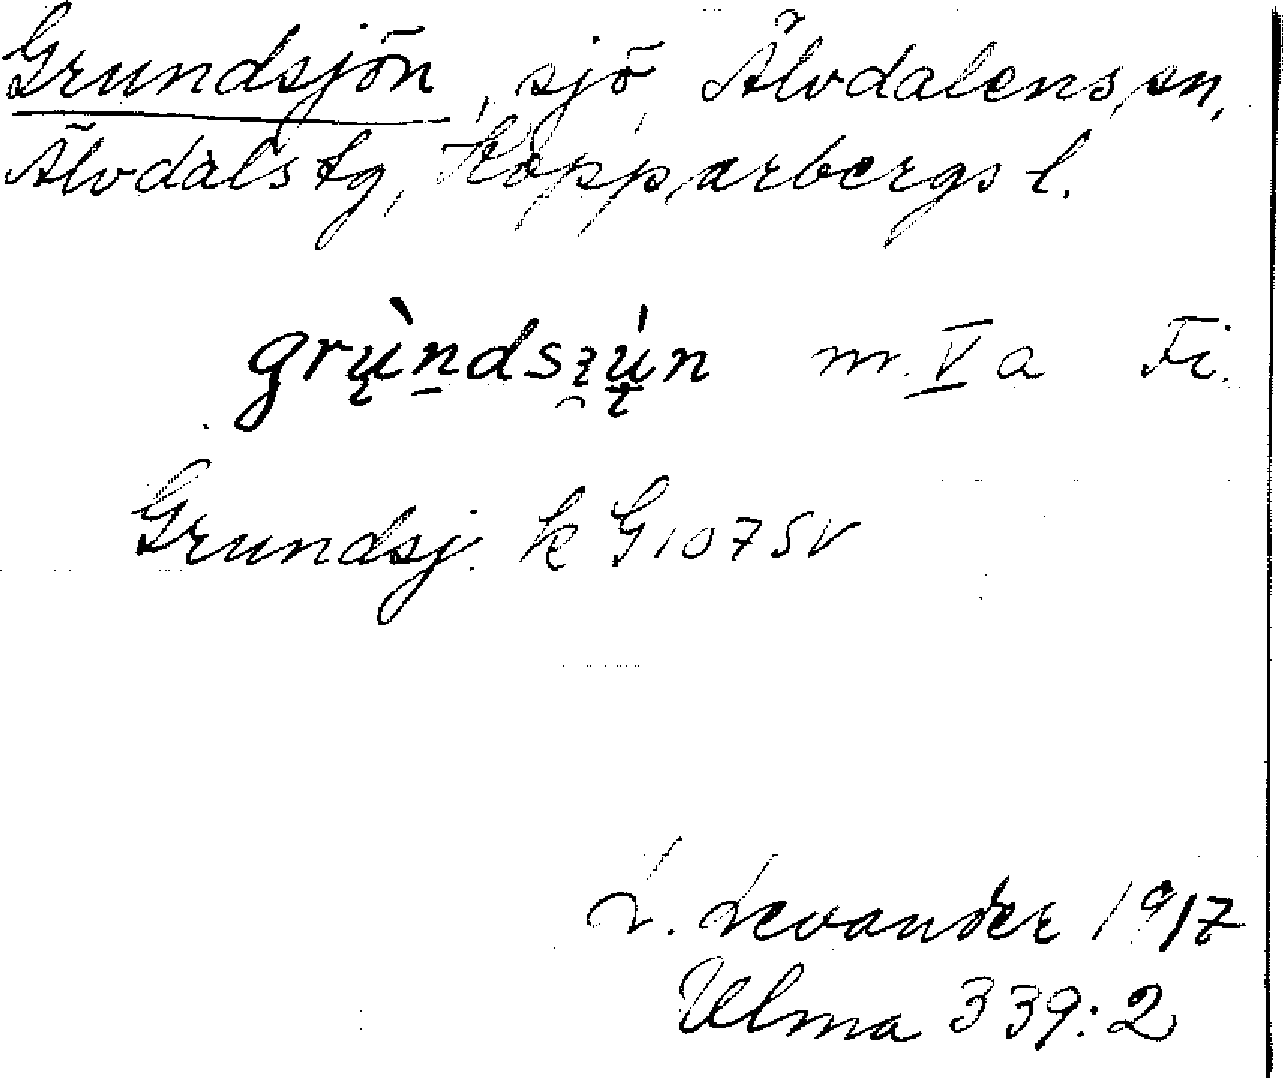 Grundsjön, sjö, Älvdalens sn,
Älvdals tg, Kopparbergs l.
grų̀n̠dsʐų́n m. V a Fi.
Grundsj. k G 107 SV
L. Levander 1917
Ulma 339:2